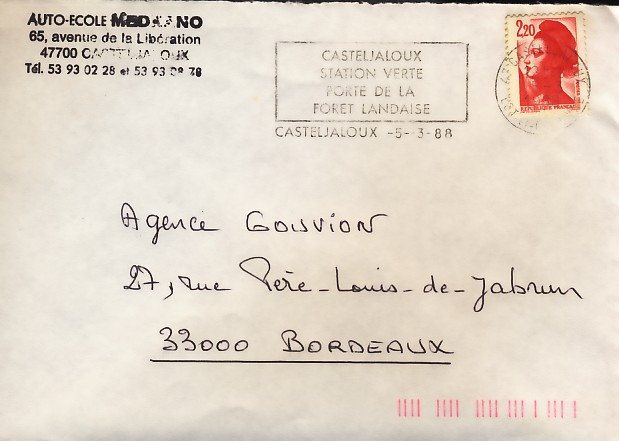 AUTO-ECOLE MEDRANO
65, avenue de la Libération
47700 CASTELJALOUX
Tél. 53 93 02 28 et 53 93 08 78
CASTELJALOUX
STATION VERTE
PORTE DE LA
FORET LANDAISE
CASTELJALOUX -5-3-88
2,20
REPUBLIQUE FRANÇAISE
Agence GOUVION
27, rue Père-Louis-de-Jabrun
33000 BORDEAUX